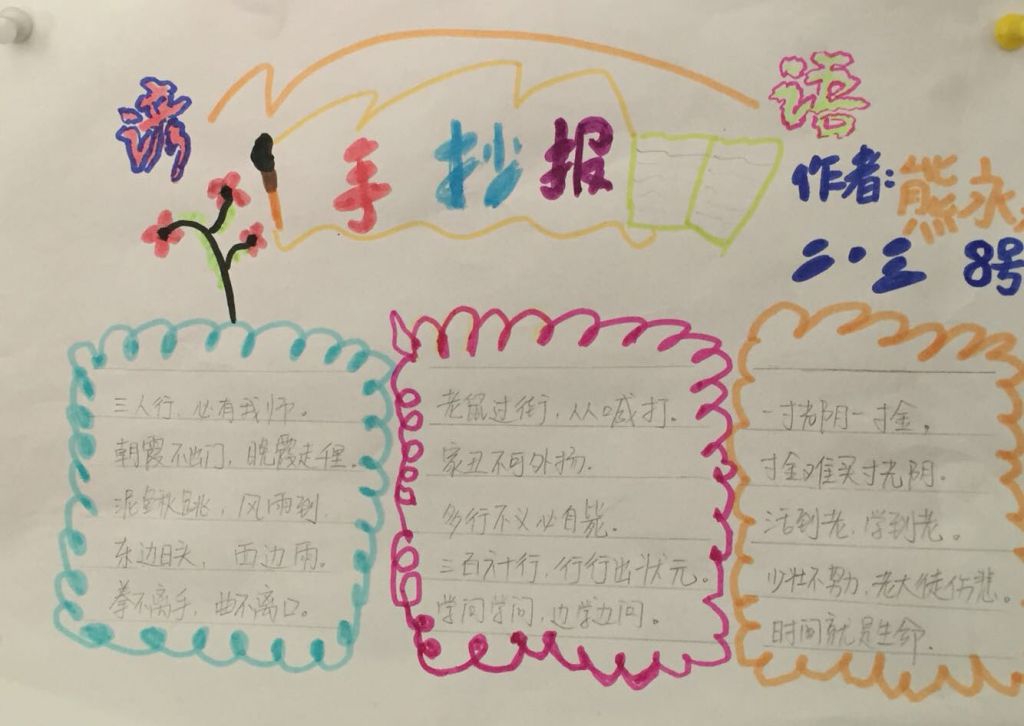 谚
语
手抄报
作者:熊永
二·三 8号
三人行，必有我师。
朝霞不出门，晚霞走千里。
泥鳅跳，风雨到
东边日头，西边雨。
拳不离手，曲不离口。
老鼠过街，人人喊打.
家丑不可外扬.
多行不义必自毙.
三百六十行，行行出状元。
学问学问，边学边问。
一寸光阴一寸金，
寸金难买寸光阴.
活到老，学到老。
少壮不努力，老大徒伤悲。
时间就是生命.